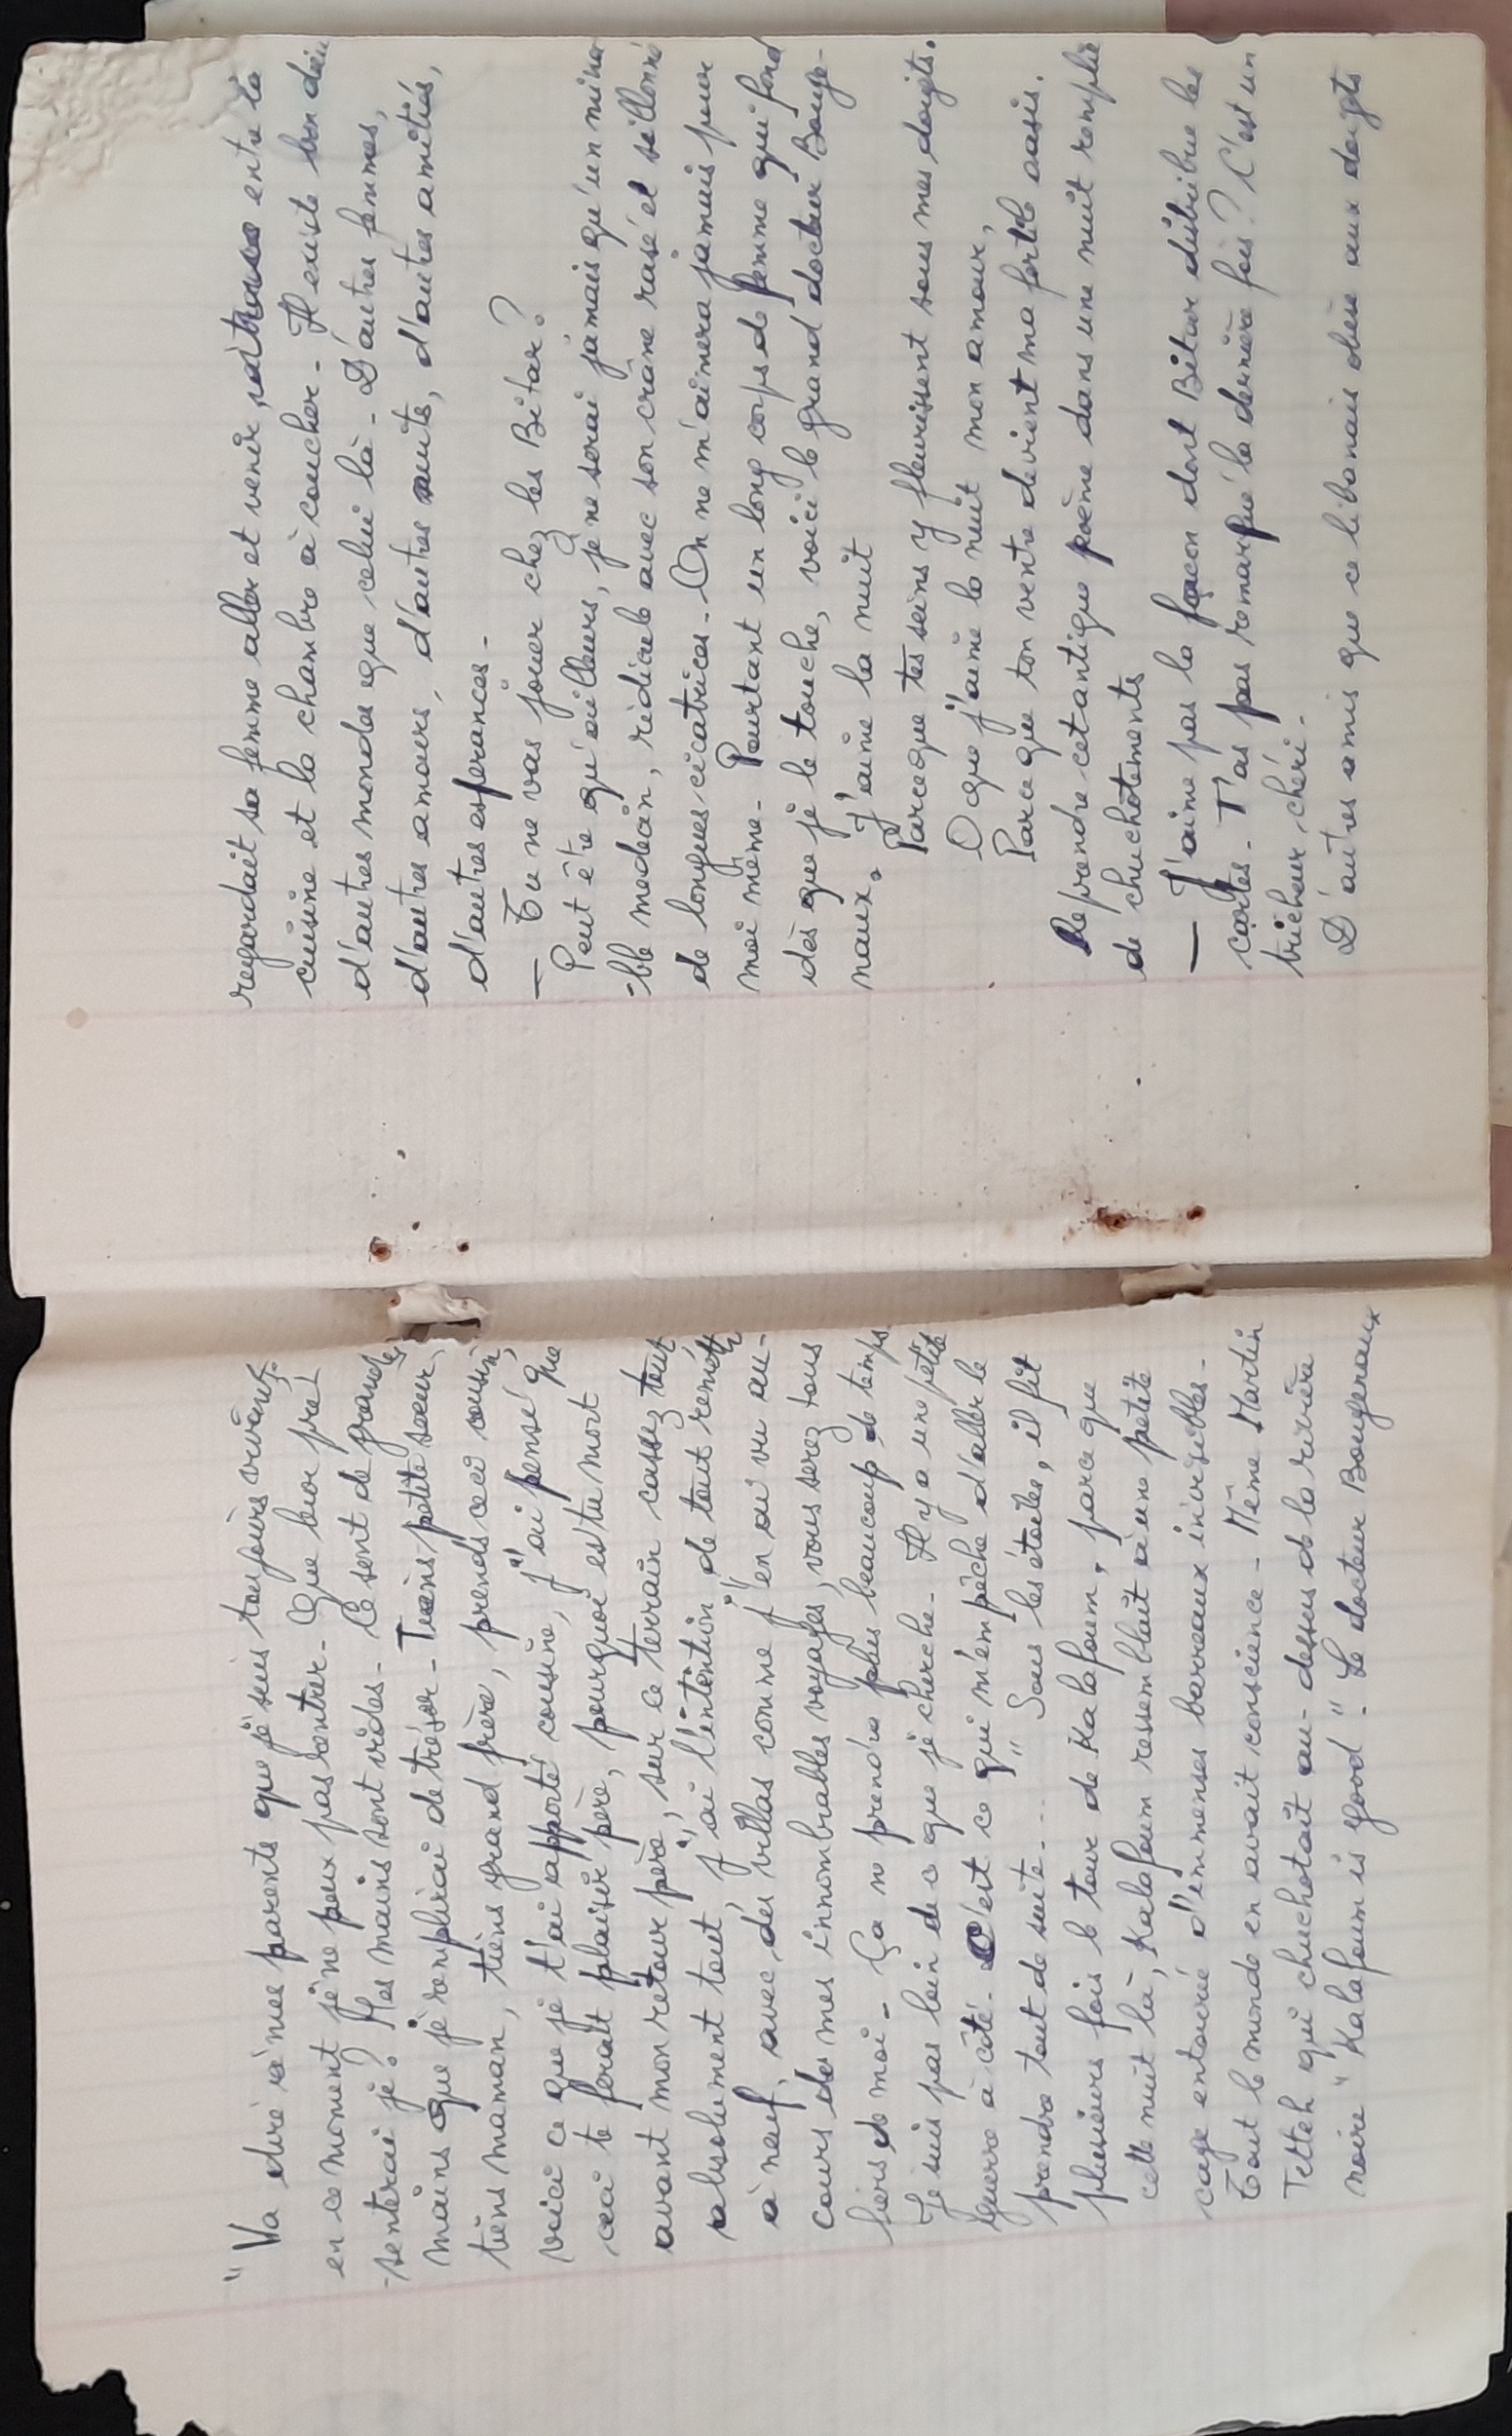 "Va dire à mes parents que je suis toujours vivant.
en ce moment je ne peux pas rentrer. Que leur pré
-senterai je? Mes mains sont vides. Ce sont de grandes
mains que je remplirai de trésor. Tiens petite soeur,
tiens maman, tiens grand frère, prends ceci cousin,
voici ce que je t'ai apporté cousine, j'ai pensé que
ceci te ferait plaisir père, pourquoi es tu mort
avant mon retour père, sur ce terrain cassez tout
absolument tout, j'ai l'intention de tout remettre
à neuf, avec des villas comme j'en ai vu au-
cours de mes innombrables voyages, vous serez tous
fiers de moi. Ça ne prendra plus beaucoup de temps.
Je suis pas loin de ce que je cherche. Il y a une petite
guerre à côté. C'est ce qui m'empêche d'aller le
prendre tout de suite... " Sous les étoiles, il fit
plusieurs fois le tour de Kalafoum, parce que
cette nuit là, Kalafoum ressemblait à une petite
cage entourée d'immenses barreaux invisibles.
Tout le monde en avait conscience. Même Martin
Tetteh qui chuchotait au-dessus de la rivière
noire "Kalafoum is good". Le docteur Bougenaux
regardait sa femme aller et venir, entre la
cuisine et la chambre à coucher. Il existe bon dieu
d'autres mondes que celui là. D'autres femmes,
d'autres amours, d'autres nuits, d'autres amitiés,
d'autres esperances.
— Tu ne vas jouer chez les Bitar?
Peut être qu'ailleurs, je ne serai jamais qu'un miséra
-ble medecin, ridicule avec son crâne rasé et sillonné
de longues cicatrices. On ne m'aimera jamais pour
moi même. Pourtant un long corps de femme qui fond
dès que je le touche, voici le grand docteur Bouge-
naux. J'aime la nuit
Parceque tes seins y fleurissent sous mes doigts.
O que j'aime la nuit mon amour,
Parce que ton ventre devient ma fertile oasis.
Reprendre cet antique poème dans une nuit remplie
de chuchotements
— J'aime pas la façon dont Bitar distribue les
cartes. T'as pas remarqué la dernière fois? C'est un
tricheur, chéri.
D'autres amis que ce libanais obèse aux doigts